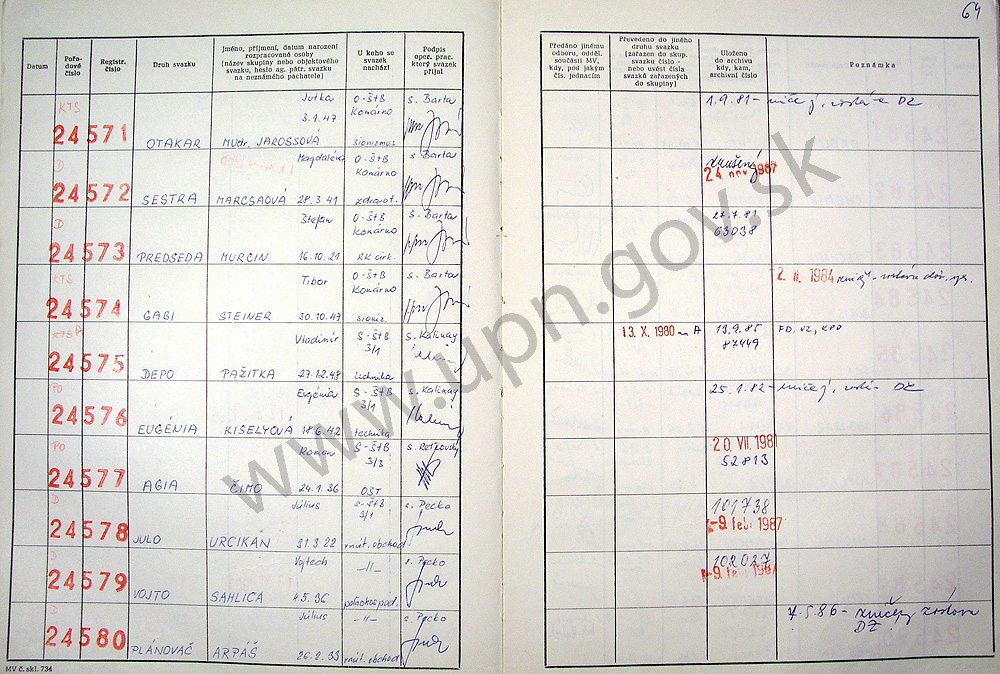 64
Datum
Pořadové číslo
Registr. číslo
Druh svazku
Jméno, příjmení, datum narození
rozpracované osoby
(název skupiny nebo objektového
svazku, heslo ag. pátr. svazku
na neznámého pachatele)
U koho se
svazek
nachází
Podpis
oper. prac.
který svazek
přijal
Předáno jinému
odboru, odděl.
součásti MV,
kdy, pod jakým
čís. jednacím
Převedeno do jiného
druhu svazku
(zařazen do skup.
svazku číslo -
nebo uvést čísla
svazků zařazených
do skupiny)
Uloženo
do archivu
kdy, kam,
archivní číslo
Poznámka
KTS Jutka O-ŠtB s. Barta
3.1.47 Komárno
24571 OTAKAR MUDr. JAROSSOVÁ sionizmus
1.9.81 - DZ
D Magdaléna O-ŠtB s. Barta
Komárno
24572 SESTRA MARCSAOVÁ 28.3.41 zdravot.
zrušený
24. nov. 1987
D Štefan O-ŠtB s. Barta
Komárno
24573 PREDSEDA MURČIN 16.10.21 RK cirk.
27.7.81
63038
KTS Tibor O-ŠtB s. Barta
Komárno
24574 GABI STEINER 30.10.47 sioniz.
2. II. 1984
KTS A Vladimír S-ŠtB s. Kalinay
3/1
24575 DEPO PAŽITKA 27.12.48 technika
13. X. 1980 A
13.9.85
87449
FD, VZ, KPO
PO Eugénia S-ŠtB s. Kalinay
3/1
24576 EUGÉNIA KISELYCOVÁ technika
25.1.82 -
PO Roman S-ŠtB
3/3
24577 AGIA ČIMO 24.1.36 OST
20. VII. 1981
52813
D Július S-ŠtB s. Pecko
3/1
24578 JULO URCIKÁN 31.3.22 vnút. obchod
101738
-9. feb. 1987
D Vojtech -11- s. Pecko
24579 VOJTO SAHLICA 4.5.36 poľnohospod.
102027
-9. feb. 1987
D Július -11- s. Pecko
24580 PLÁNOVAČ ARPÁŠ 26.2.33 vnút. obchod
7.5.86 -
DZ
MV č. skl. 734
www.upn.gov.sk